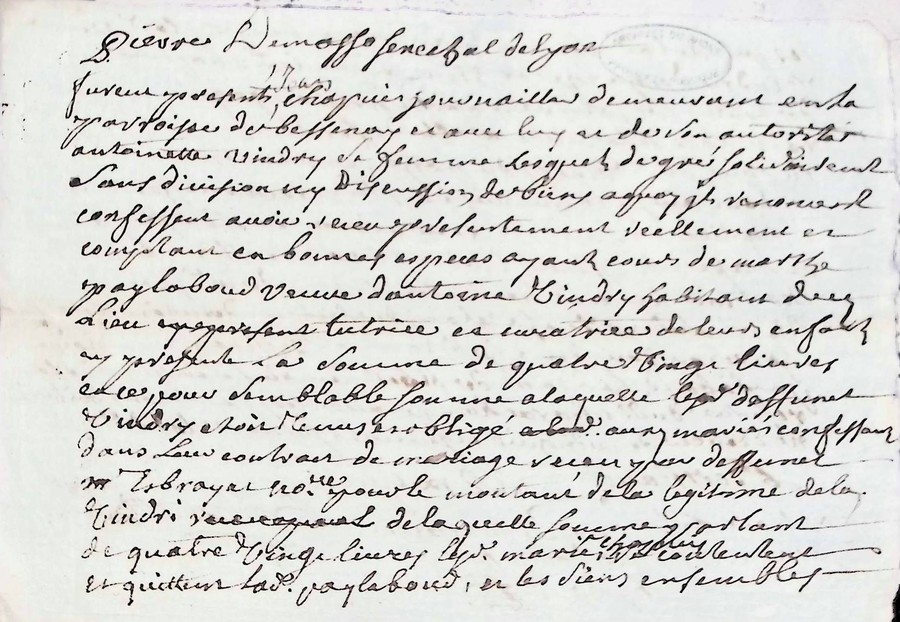 Pierre Demasso senechal de lyon
furent presents jean chapuis journailler demeurant en la
parroisse de bessenay et avec luy et de son autorité
antoinette vindry sa femme lesquels de gré solid.
sans division ny discussion de biens a quoy ils renoncent
confessent avoir receu presentement reellement et
comptant en bonnes especes ayant cours de marthe
paylaboud veuve d'antoine vindry habitant de ce
Lieu tutrice et curatrice de leurs enfants
cy presente La somme de quatre vingt livres
et ce pour semblable somme a laquelle led. deffunct
vindry etoit tenus et obligé aux mariés confessant
dans Leur contrat de mariage receu par deffunct
mr Esbrayat no.re pour le montant de la legitime de la
vindri de laquelle somme partant
de quatre vingt livres lesd. mariés chapuis se contentent
et quittent lad. paylaboud, et les siens ensembles